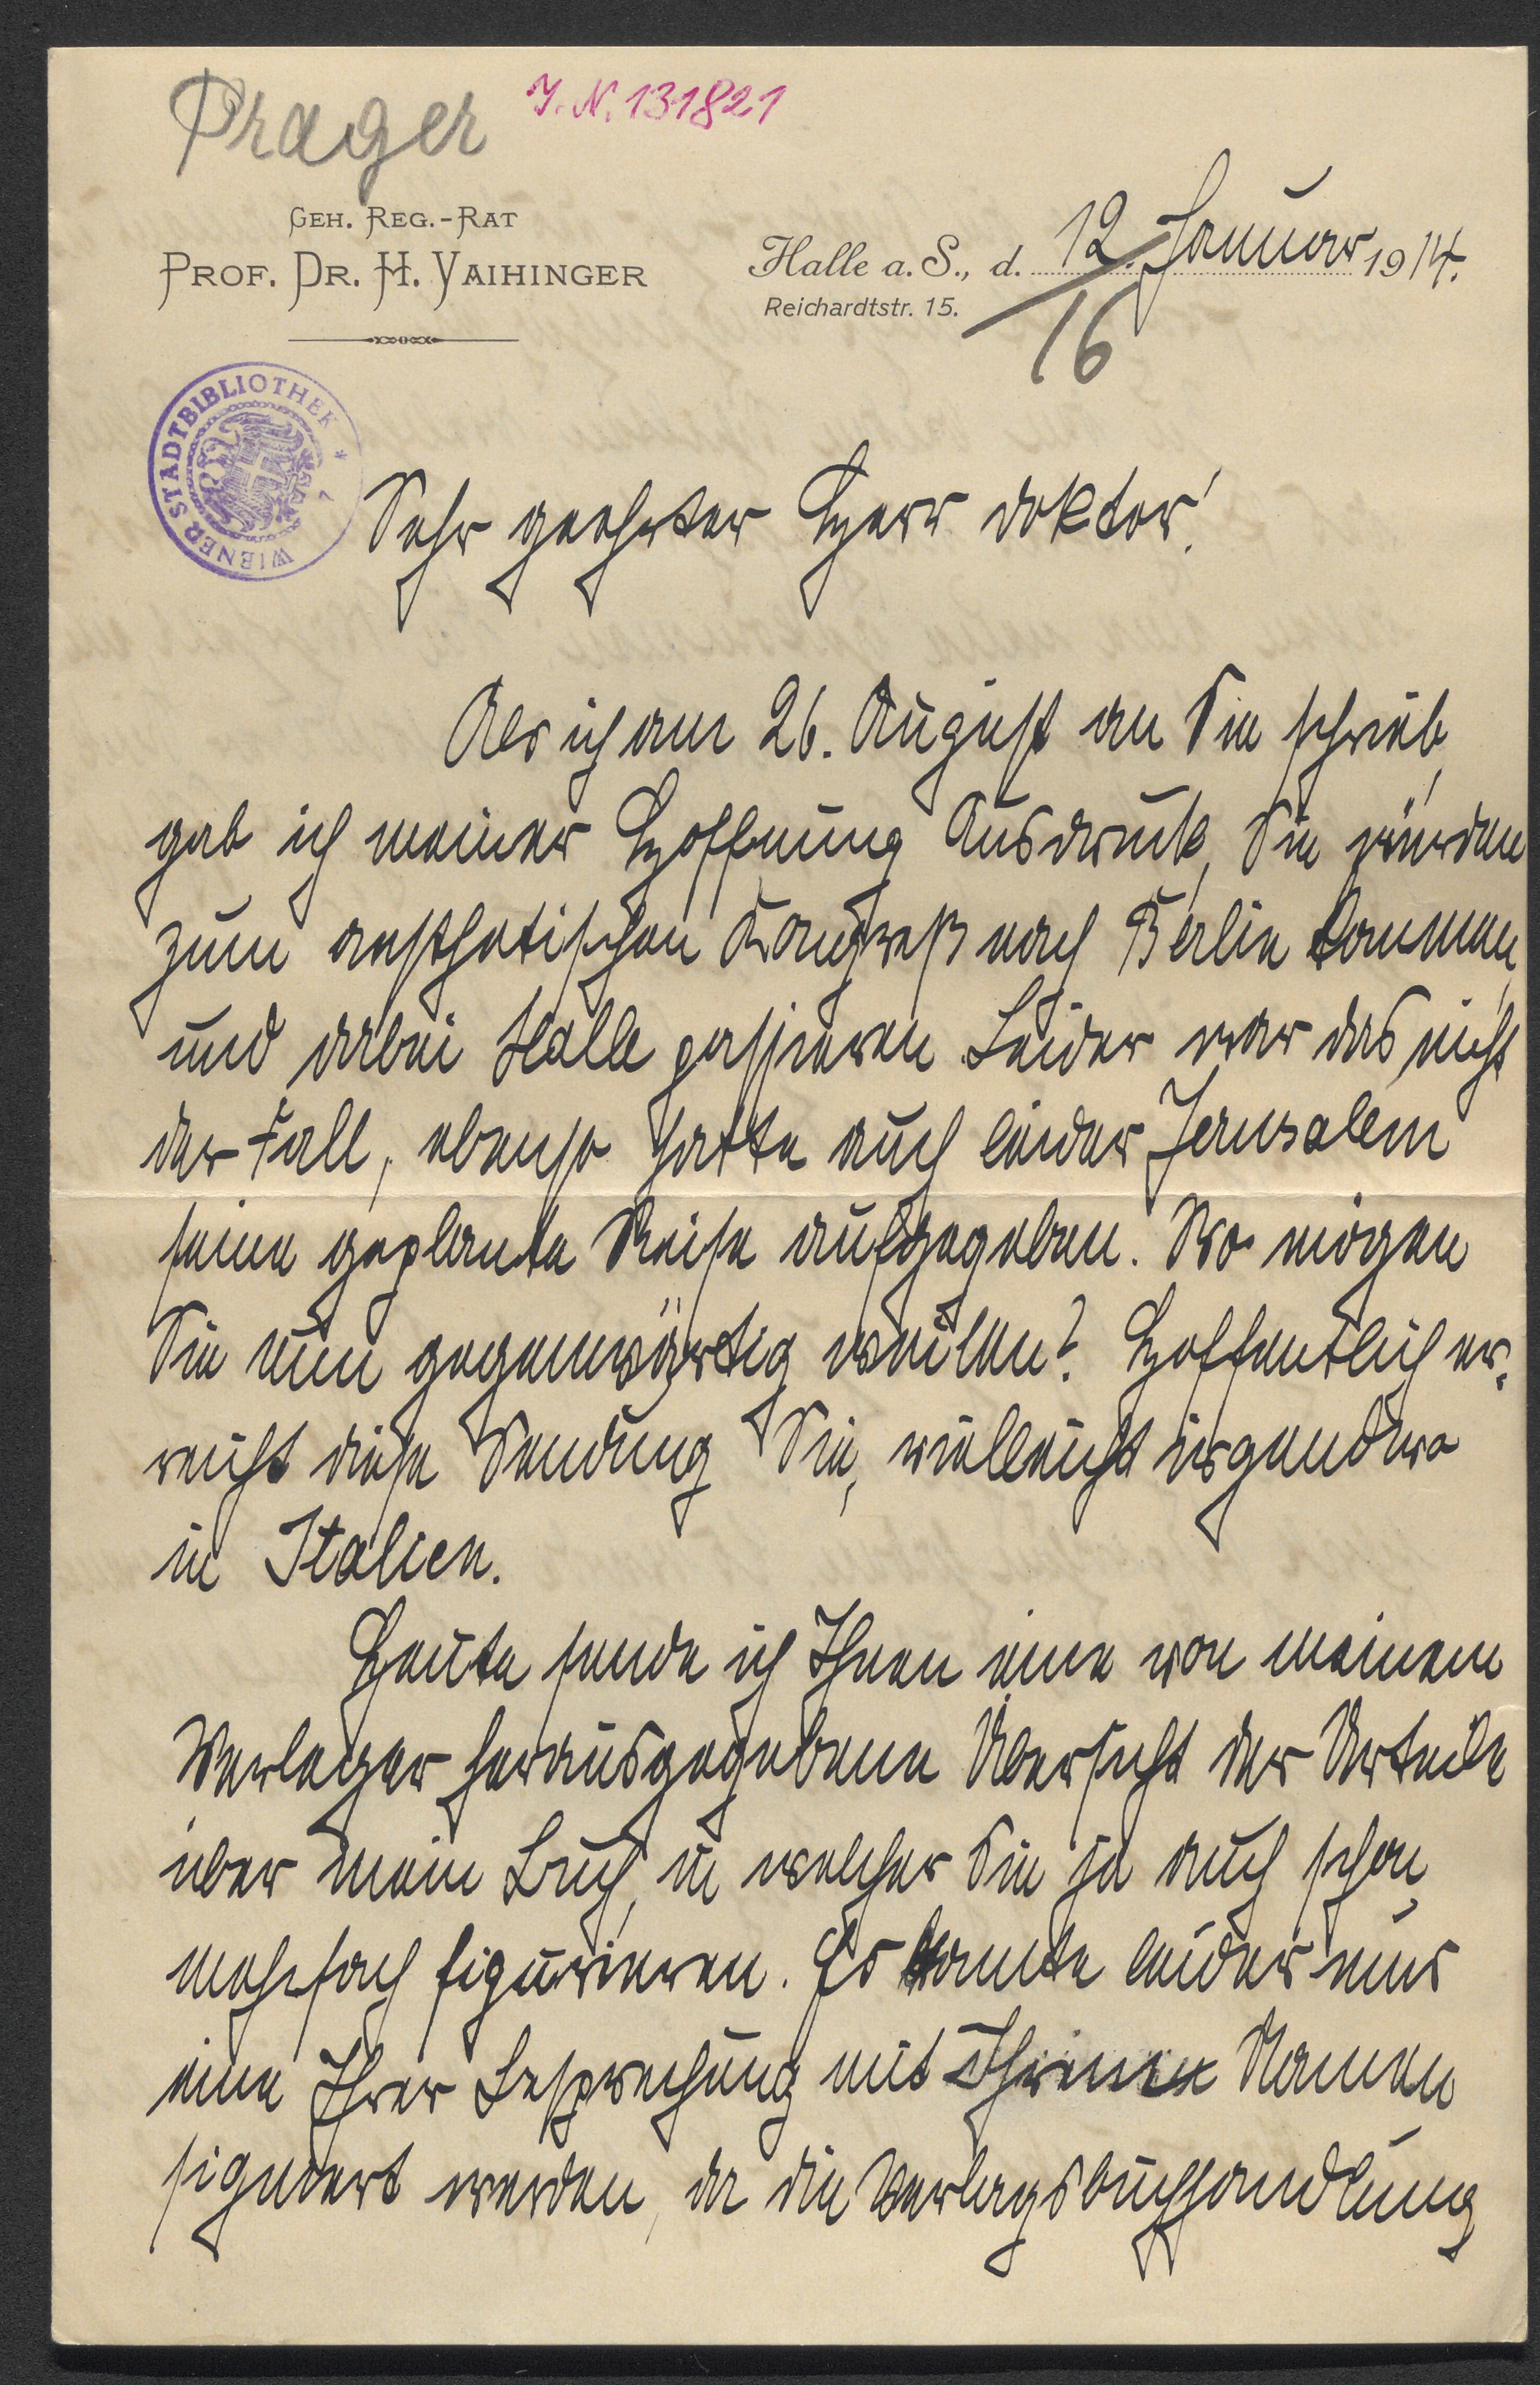 Prager
I. N. 131821
GEH. REG.-RAT
PROF. DR. H. VAIHINGER
Halle a. S., d. 12. Januar 1914.
Reichardtstr. 15.
16
WIENER STADTBIBLIOTHEK * 7
Sehr geehrter Herr Doktor!
Als ich am 26. August an Sie schrieb,
gab ich meiner Hoffnung Ausdruck, Sie würden
zum aesthetischen Kongreß nach Berlin kommen,
und dabei Halle passieren. Leider war das nicht
der Fall, ebenso hatte auch leider Jerusalem
seine geplante Reise aufgegeben. Wo mögen
Sie nun gegenwärtig weilen? Hoffentlich er-
reicht diese Sendung Sie, vielleicht irgendwo
in Italien.
Heute sende ich Ihnen eine von meinem
Verleger herausgegebene Übersicht der Urteile
über mein Buch, in welcher Sie ja auch schon
mehrfach figurieren. Es konnte leider nur
eine Ihrer Besprechung mit Ihrem Namen
signiert werden, da die Verlagsbuchhandlung